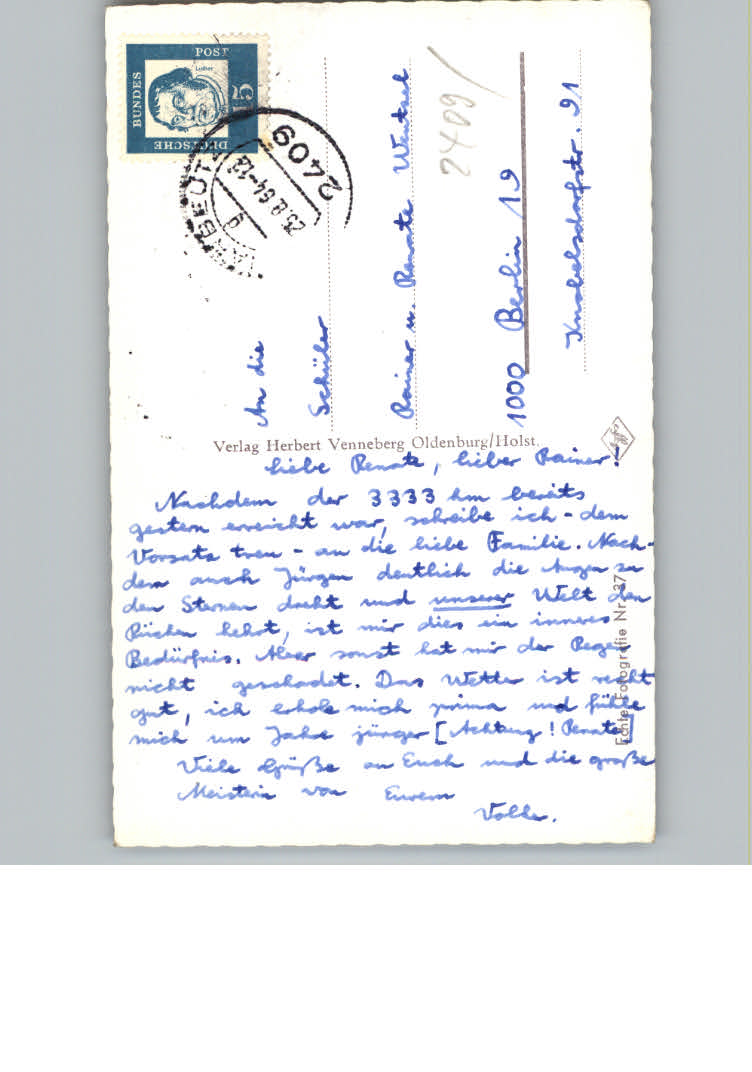 DEUTSCHE
BUNDES
POST
Luther
15
2409
23.8.64-18
g
2409
An die
Schüler
Rainer u. Renate
1000 Berlin 19
Knobelsdorfstr. 91
Verlag Herbert Venneberg Oldenburg/Holst.
Agfa
Echte Fotografie Nr. 37
liebe Renate, lieber Rainer!
Nachdem der 3333 km bereits
gestern erreicht war, schreibe ich - dem
Vorsatz treu - an die liebe Familie. Nach-
dem auch Jürgen deutlich die Augen zu
den Sternen dreht und unserer Welt den
Rücken kehrt, ist mir dies ein inneres
Bedürfnis. Aber sonst hat mir der Regen
nicht geschadet. Das Wetter ist recht
gut, ich erhole mich prima und fühle
mich um Jahre jünger [Achtung! Renate]
Viele Grüße an Euch und die große
Meisterin von Eurem